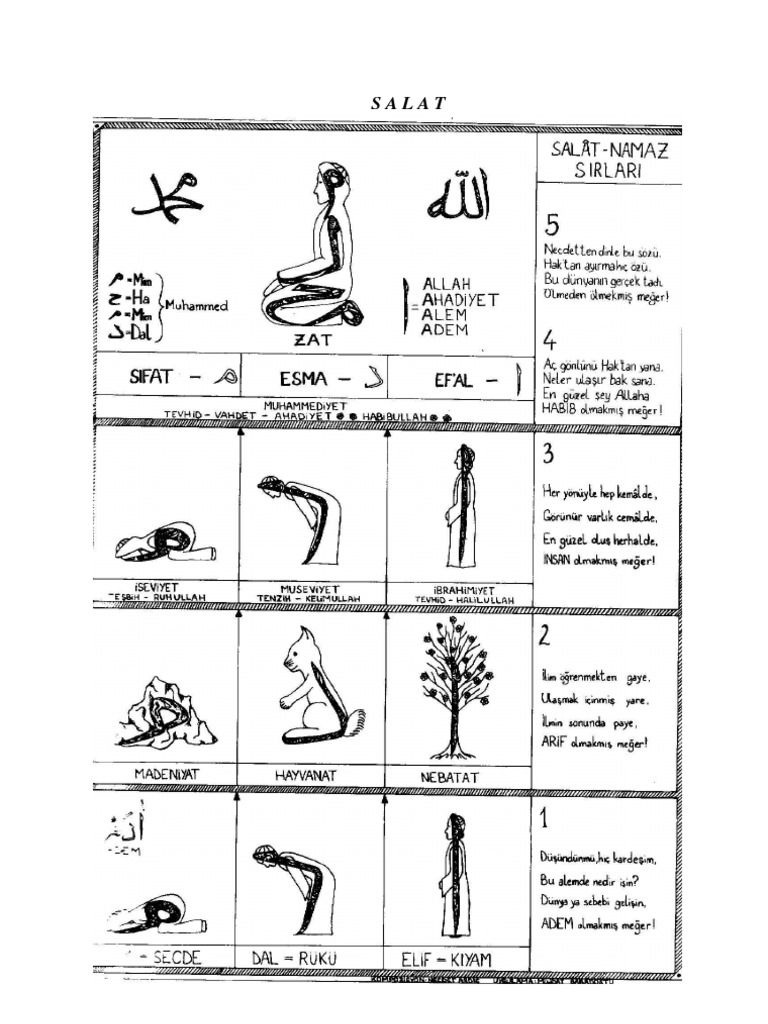 SALAT
SALÂT-NAMAZ
SIRLARI
محمد
الله
م =Mim
ح =Ha
م =Mim
د =Dal
Muhammed
ا =
ALLAH
AHADİYET
ALEM
ADEM
ZAT
SIFAT - م
ESMA - د
EF'AL - ا
MUHAMMEDİYET
TEVHİD - VAHDET - AHADİYET HABİBULLAH
5
Necdetten dinle bu sözü.
Hak'tan ayırma hiç özü.
Bu dünyanın gerçek tadı.
Ölmeden ölmekmiş meğer!
4
Aç gönlünü Hak'tan yana.
Neler ulaşır bak sana.
En güzel şey Allaha
HABİB olmakmış meğer!
İSEVİYET
TEŞBİH - RUHULLAH
MUSEVİYET
TENZİH - KELİMULLAH
İBRAHİMİYET
TEVHİD - HALİLULLAH
3
Her yönüyle hep kemâlde,
Görünür varlık cemâlde,
En güzel oluş herhalde,
İNSAN olmakmış meğer!
MADENİYAT
HAYVANAT
NEBATAT
2
İlim öğrenmekten gaye,
Ulaşmak içinmiş yare,
İlmin sonunda paye,
ARİF olmakmış meğer!
- SECDE
DAL = RÜKÜ
ELİF = KIYAM
1
Düşündünmü,hiç kardeşim,
Bu alemde nedir işin?
Dünya ya sebebi gelişin,
ADEM olmakmış meğer!